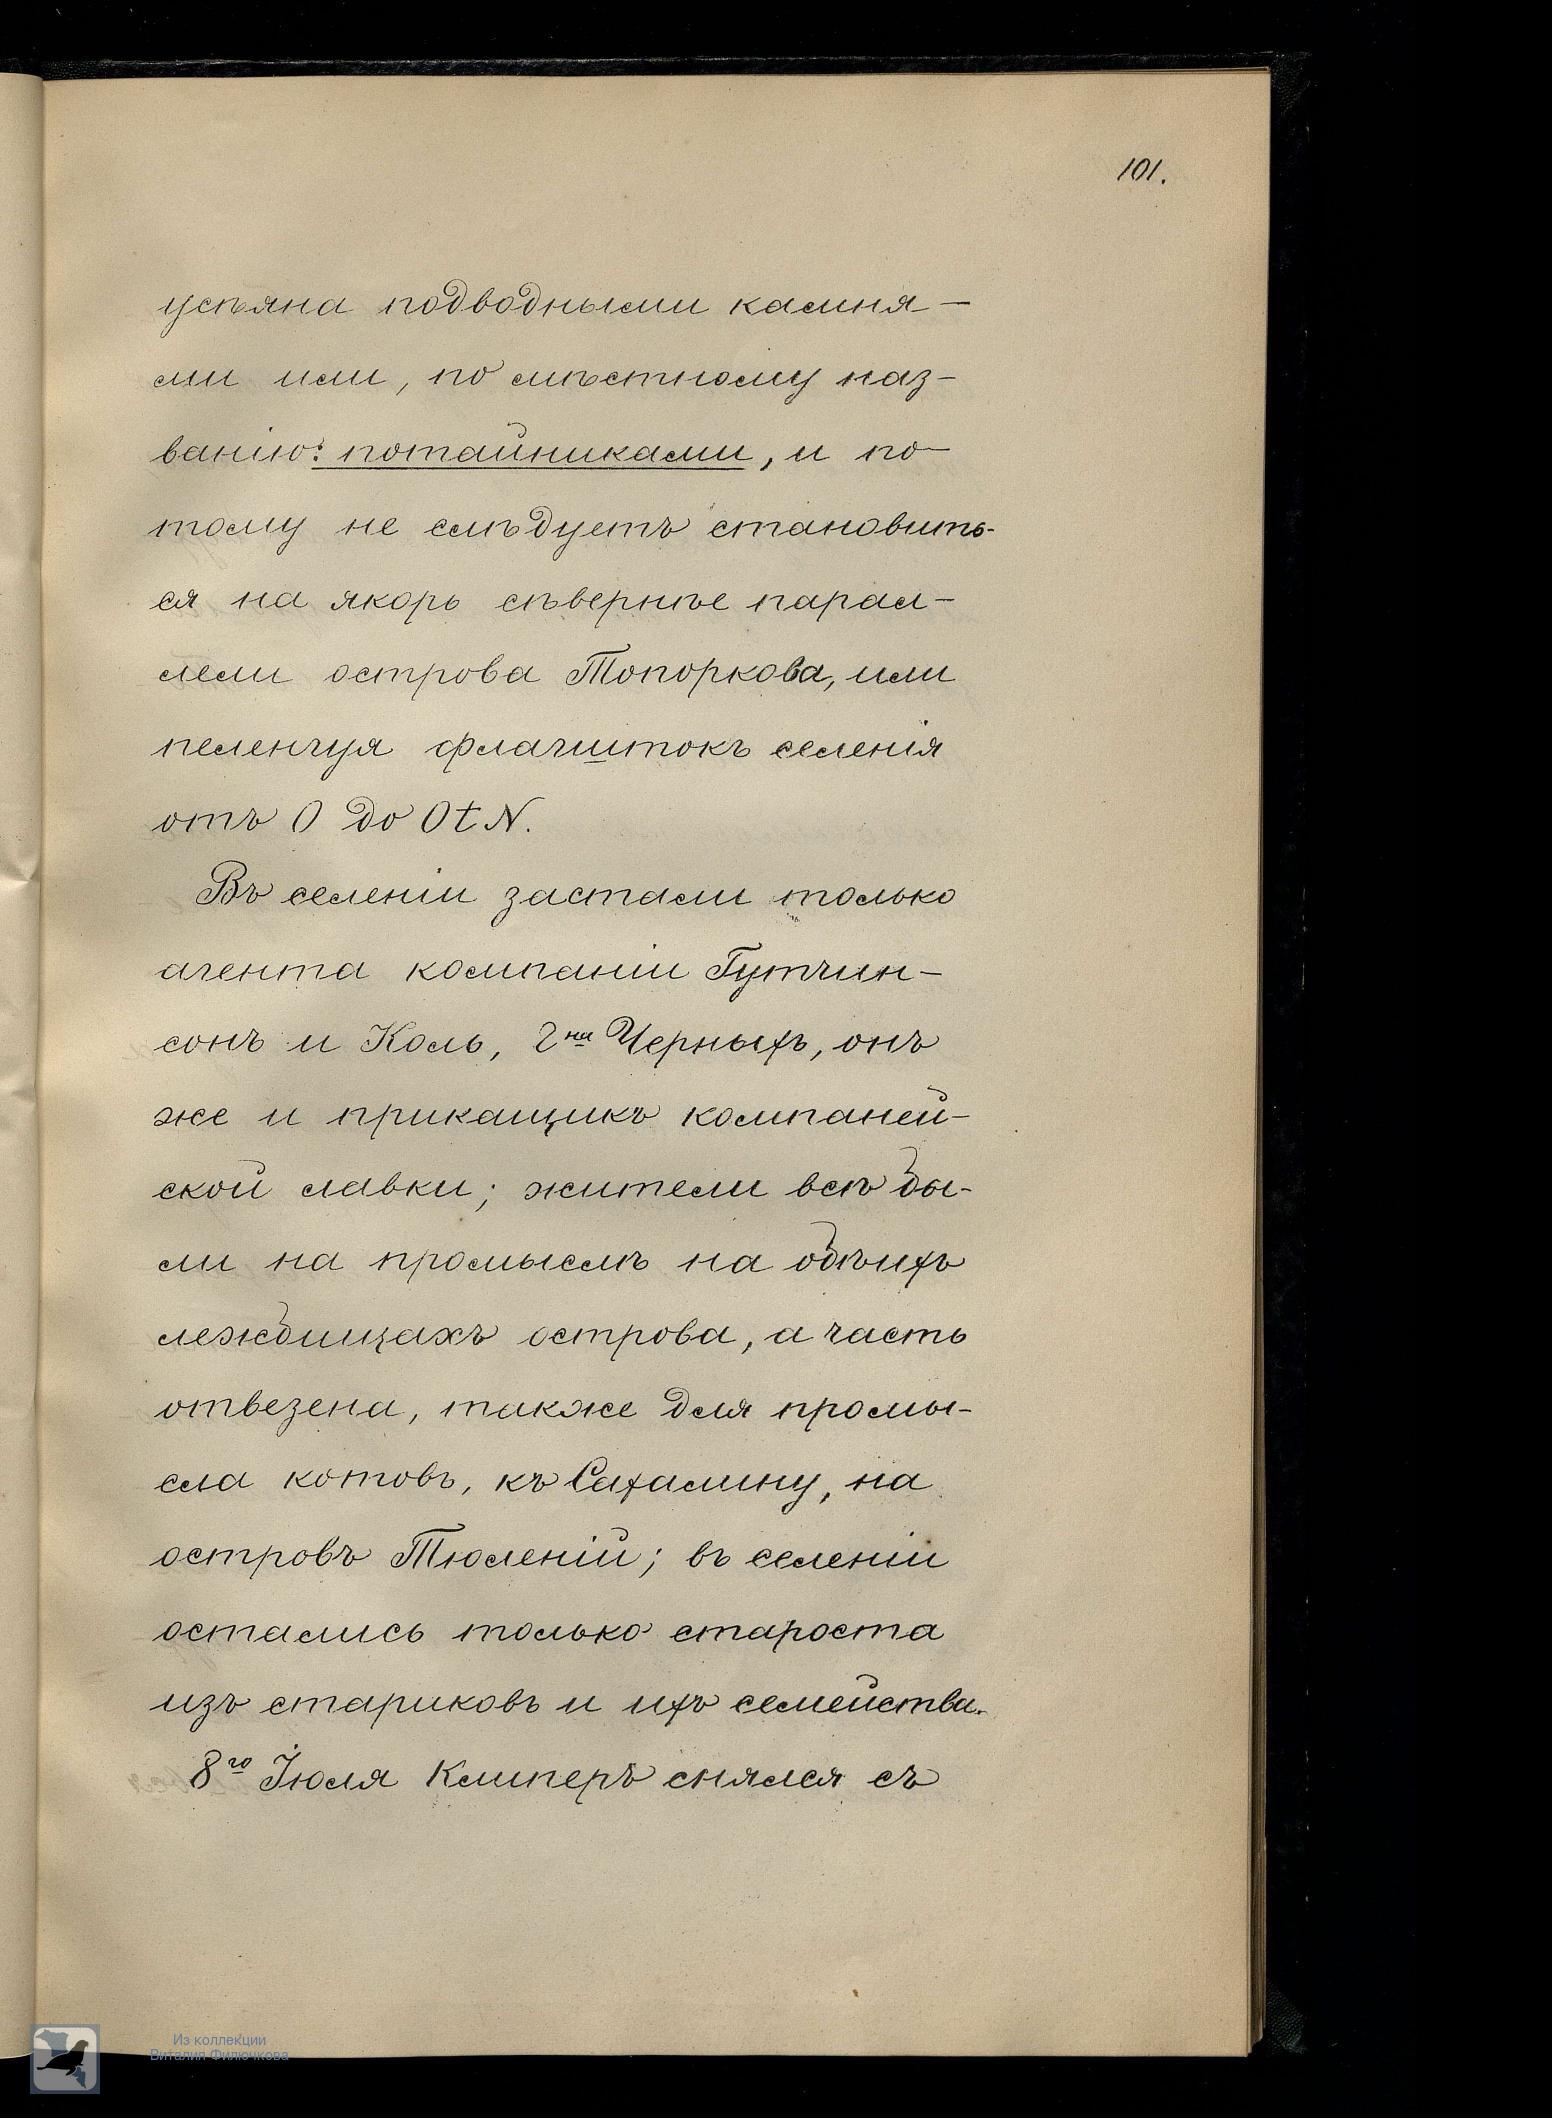 101.
усѣяна подводными камня-
ми или, по мѣстному наз-
ванію: потайниками, и по-
тому не слѣдуетъ становить-
ся на якорь сѣвернѣе парал-
лели острова Топоркова, или
пеленгуя флагштокъ селенія
отъ O до OtN.
Въ селеніи застали только
агента компаніи Гутчин-
сонъ и Коль, г-на Черныхъ, онъ
же и прикащикъ компаней-
ской лавки; жители всѣ бы-
ли на промыслѣ на обѣихъ
лежбищахъ острова, а часть
отвезена, также для промы-
сла котовъ, къ Сахалину, на
островъ Тюленій; въ селеніи
остались только староста
изъ стариковъ и ихъ семейства.
8го Іюля Клиперъ снялся съ
Из коллекции
Виталия Филючкова